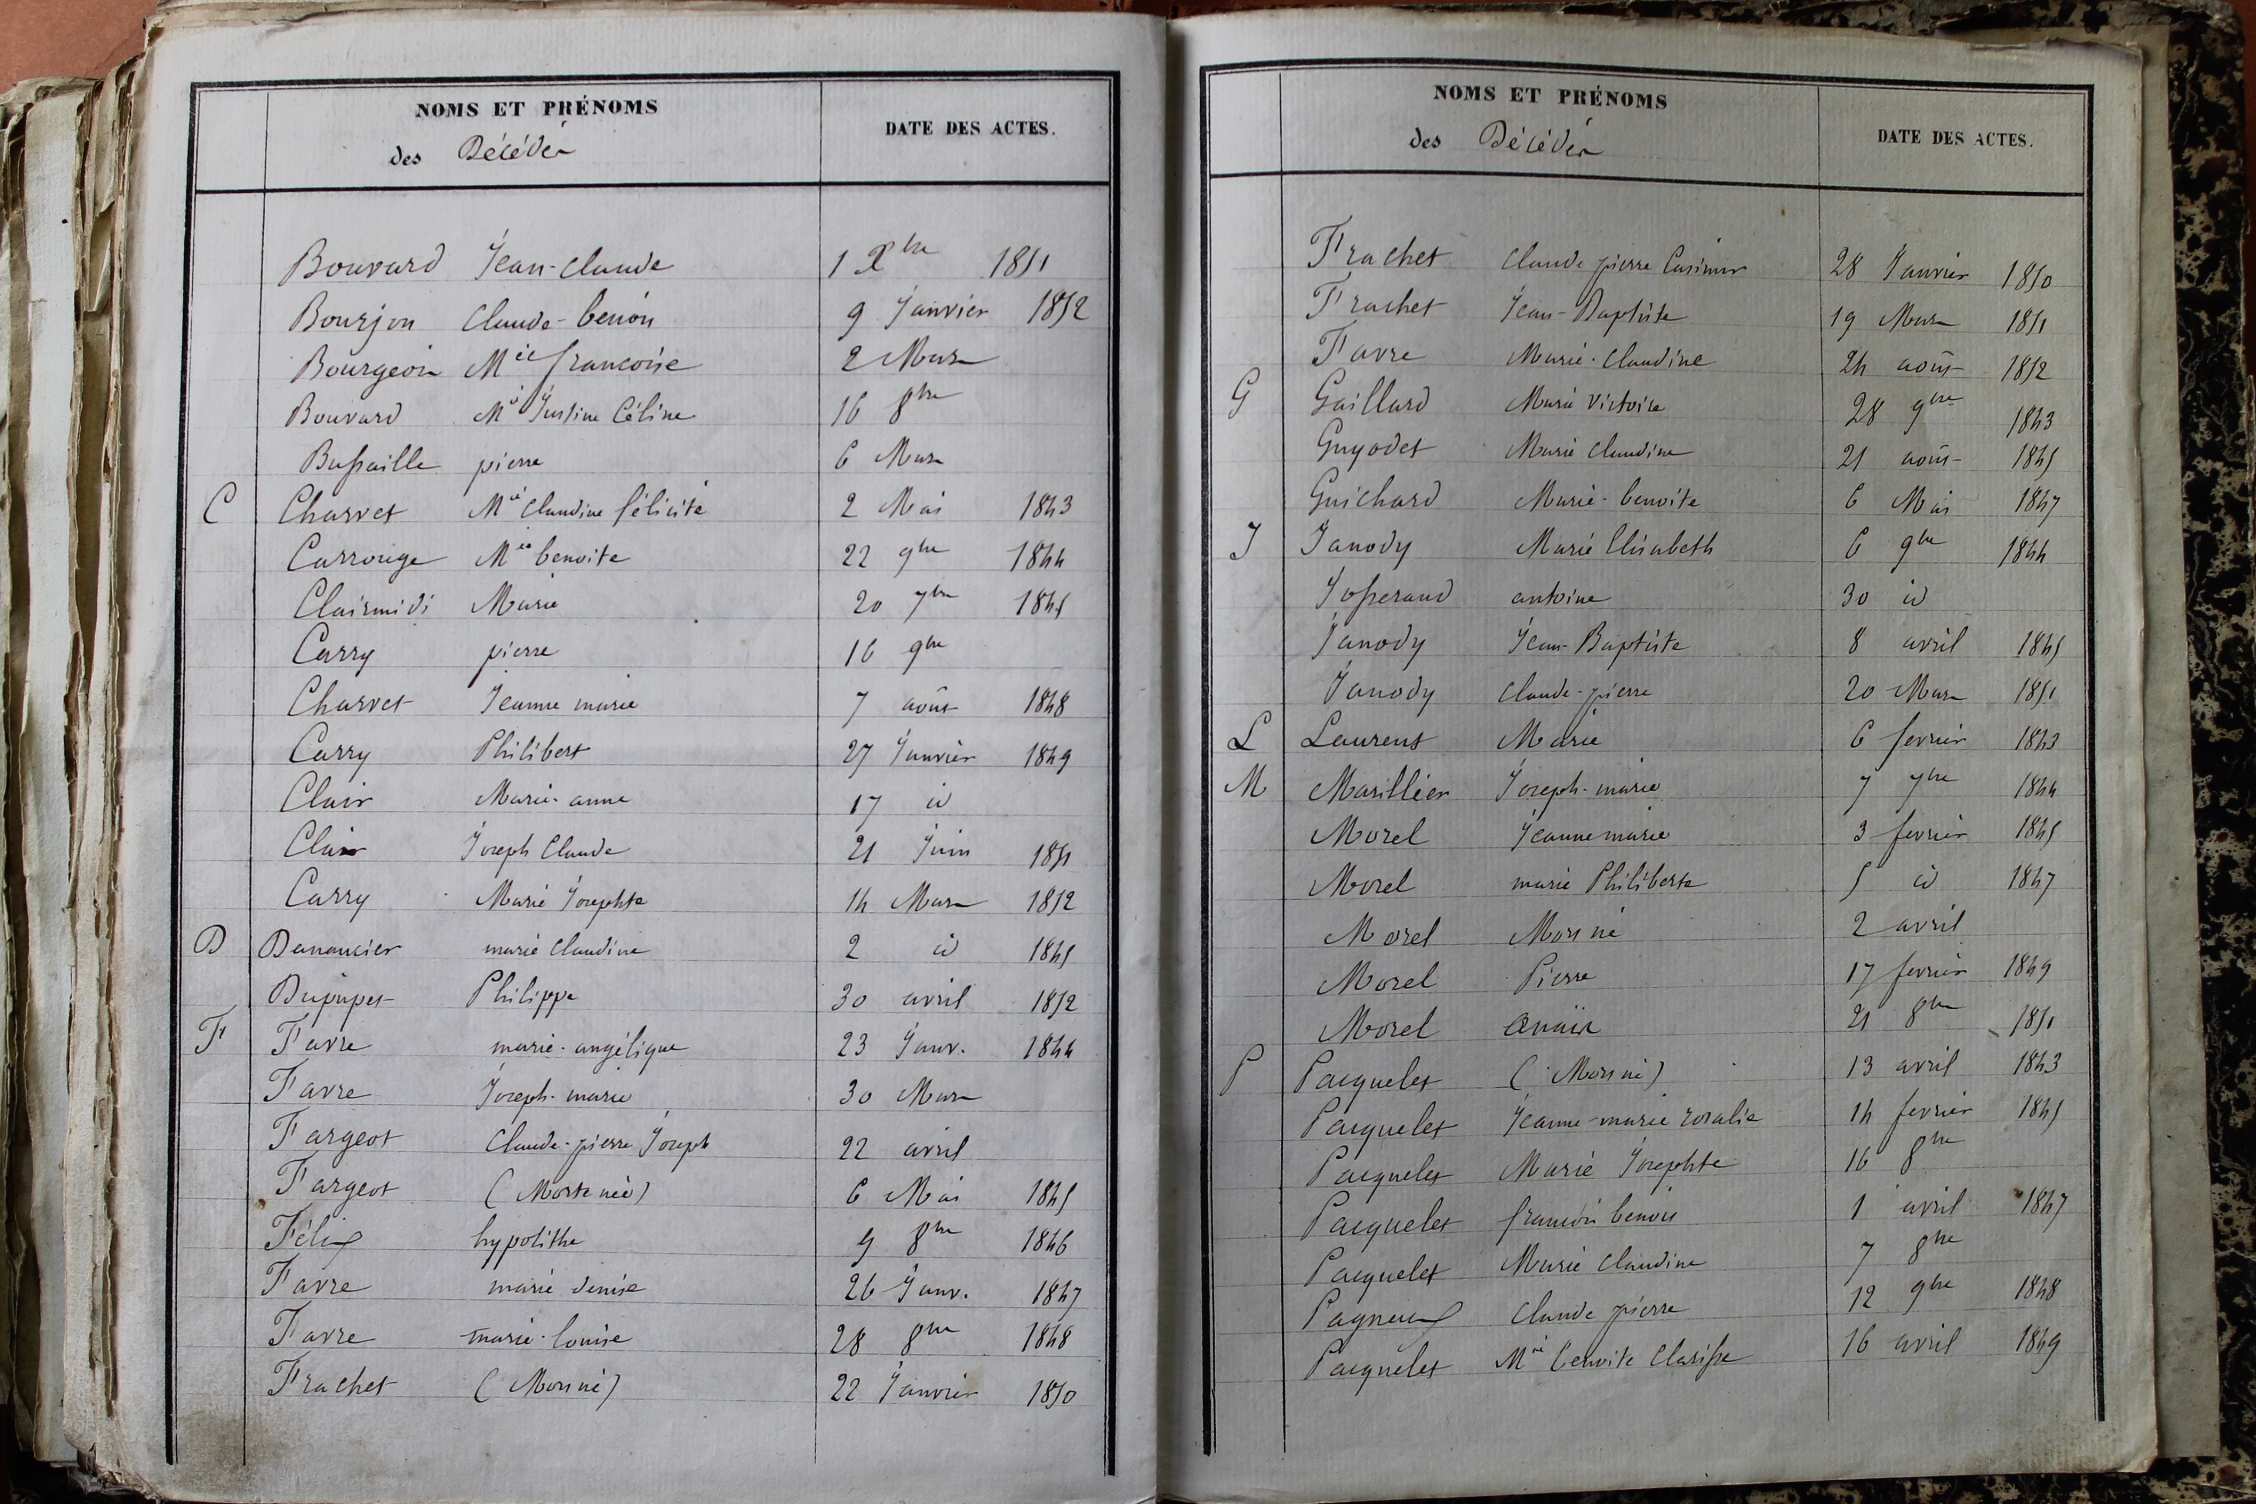 NOMS ET PRÉNOMS
des Décédés
DATE DES ACTES.
Bouvard Jean-Claude 1 Xbre 1851
Bourjon Claude-benoit 9 Janvier 1852
Bourgeon Mie francoise 2 Mars
Bouvard Mie Justine Céline 16 8bre
Bussaille pierre 6 Mars
C Charvet Mie Claudine félicité 2 Mai 1843
Carrouge Mie benoite 22 9bre 1844
Clairmidi Marie 20 7bre 1845
Carry pierre 16 9bre
Charvet Jeanne marie 7 août 1848
Carry Philibert 27 Janvier 1849
Clair Marie-anne 17 id
Clair Joseph Claude 21 Juin 1851
Carry Marie Josephte 14 Mars 1852
D Danancier marie Claudine 2 id 1845
Dupupet Philippe 30 avril 1852
F Favre marie-angélique 23 Janv. 1844
Favre Joseph-marie 30 Mars
Fargeot Claude-pierre Joseph 22 avril
Fargeot (Morte née) 6 Mai 1845
Félix hypolithe 9 8bre 1846
Favre marie denise 26 Janv. 1847
Favre marie-louise 28 8bre 1848
Frachet (Mort né) 22 Janvier 1850
NOMS ET PRÉNOMS
des Décédés
DATE DES ACTES.
Frachet Claude pierre Casimir 28 Janvier 1850
Frachet Jean-Baptiste 19 Mars 1851
Favre Marie-Claudine 24 août 1852
G Gaillard Marie Victoire 28 9bre 1843
Guyodet Marie Claudine 21 août 1845
Guichard Marie-benoite 6 Mai 1847
J Janody Marie Elisabeth 6 9bre 1844
Josserand antoine 30 id
Janody Jean-Baptiste 8 avril 1845
Janody Claude-pierre 20 Mars 1851
L Laurent Marie 6 fevrier 1843
M Marillier Joseph-marie 7 7bre 1844
Morel Jeanne marie 3 fevrier 1845
Morel marie Philiberte 5 id 1847
Morel Mort né 2 avril
Morel Pierre 17 fevrier 1849
Morel Anaïs 21 8bre 1851
P Pacquelet (Mort né) 13 avril 1843
Pacquelet Jeanne-marie rosalie 14 fevrier 1845
Pacquelet Marie Josephte 16 8bre
Pacquelet francois benoit 1 avril 1847
Pacquelet Marie Claudine 7 8bre
Pagneux Claude pierre 12 9bre 1848
Pacquelet Mie benoite Clarisse 16 avril 1849